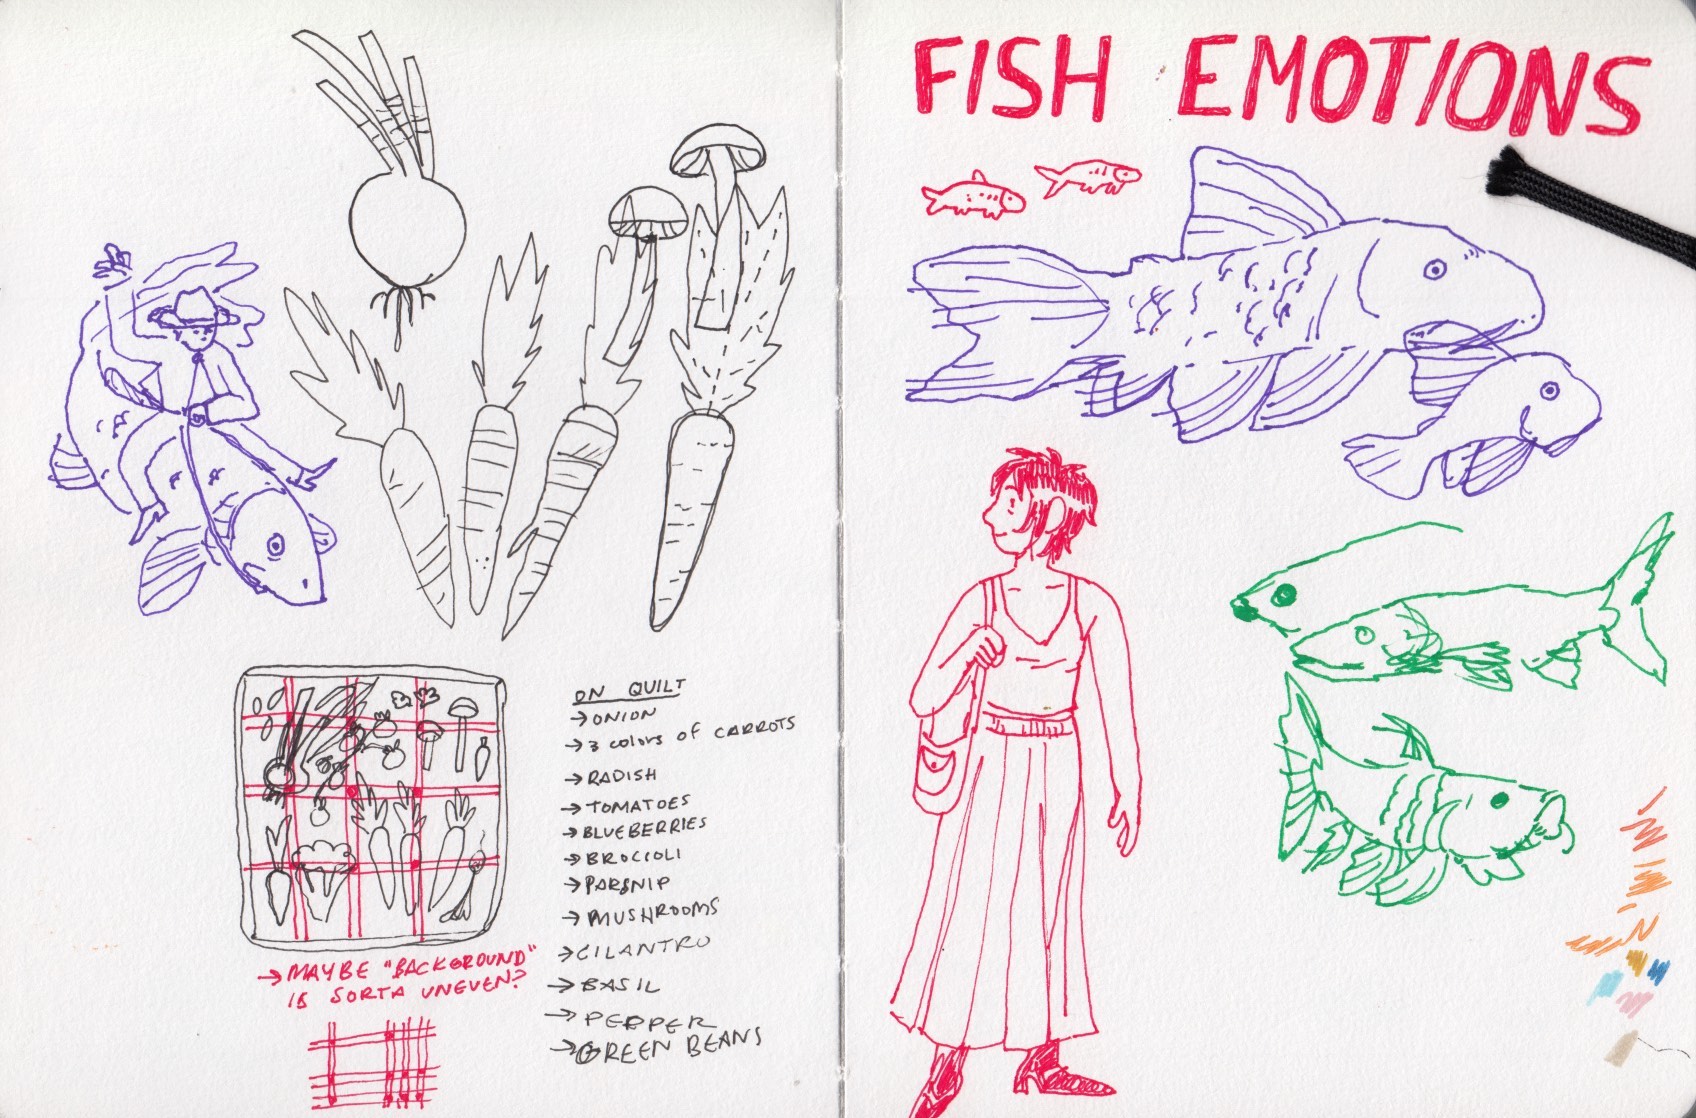 ON QUILT
→ ONION
→ 3 colors of CARROTS
→ RADISH
→ TOMATOES
→ BLUEBERRIES
→ BROCIOLI
→ PARSNIP
→ MUSHROOMS
→ CILANTRO
→ BASIL
→ PEPPER
→ GREEN BEANS
→ MAYBE "BACKGROUND"
IS SORTA UNEVEN?
FISH EMOTIONS